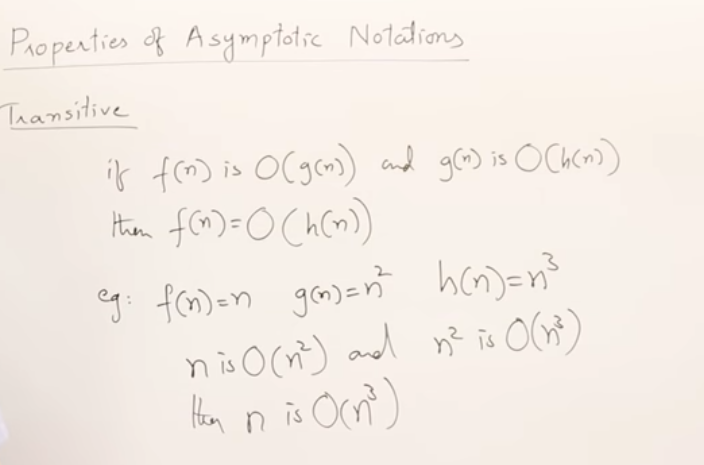 Properties of Asymptotic Notations
Transitive
if f(n) is O(g(n)) and g(n) is O(h(n))
then f(n)=O(h(n))
eg: f(n)=n g(n)=n² h(n)=n³
n is O(n²) and n² is O(n³)
then n is O(n³)